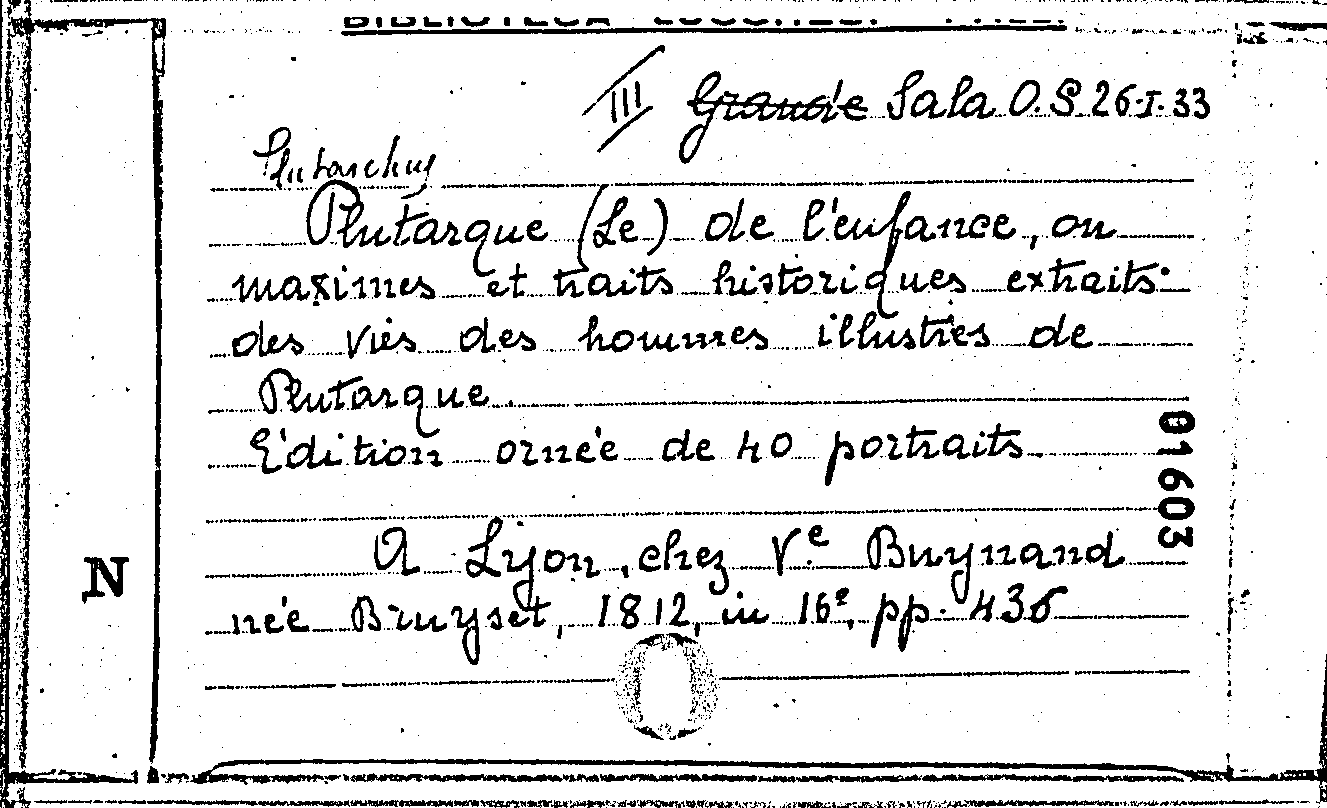 BIBLIOTECA
III Grande Sala O.S. 26.I.33
Plutarchus
Plutarque (Le) de l'enfance, ou
maximes et traits historiques extraits
des vies des hommes illustres de
Plutarque.
Édition ornée de 40 portraits.
01603
A Lyon, chez Ve Buynand
née Bruyset, 1812, in 16º, pp. 436
N